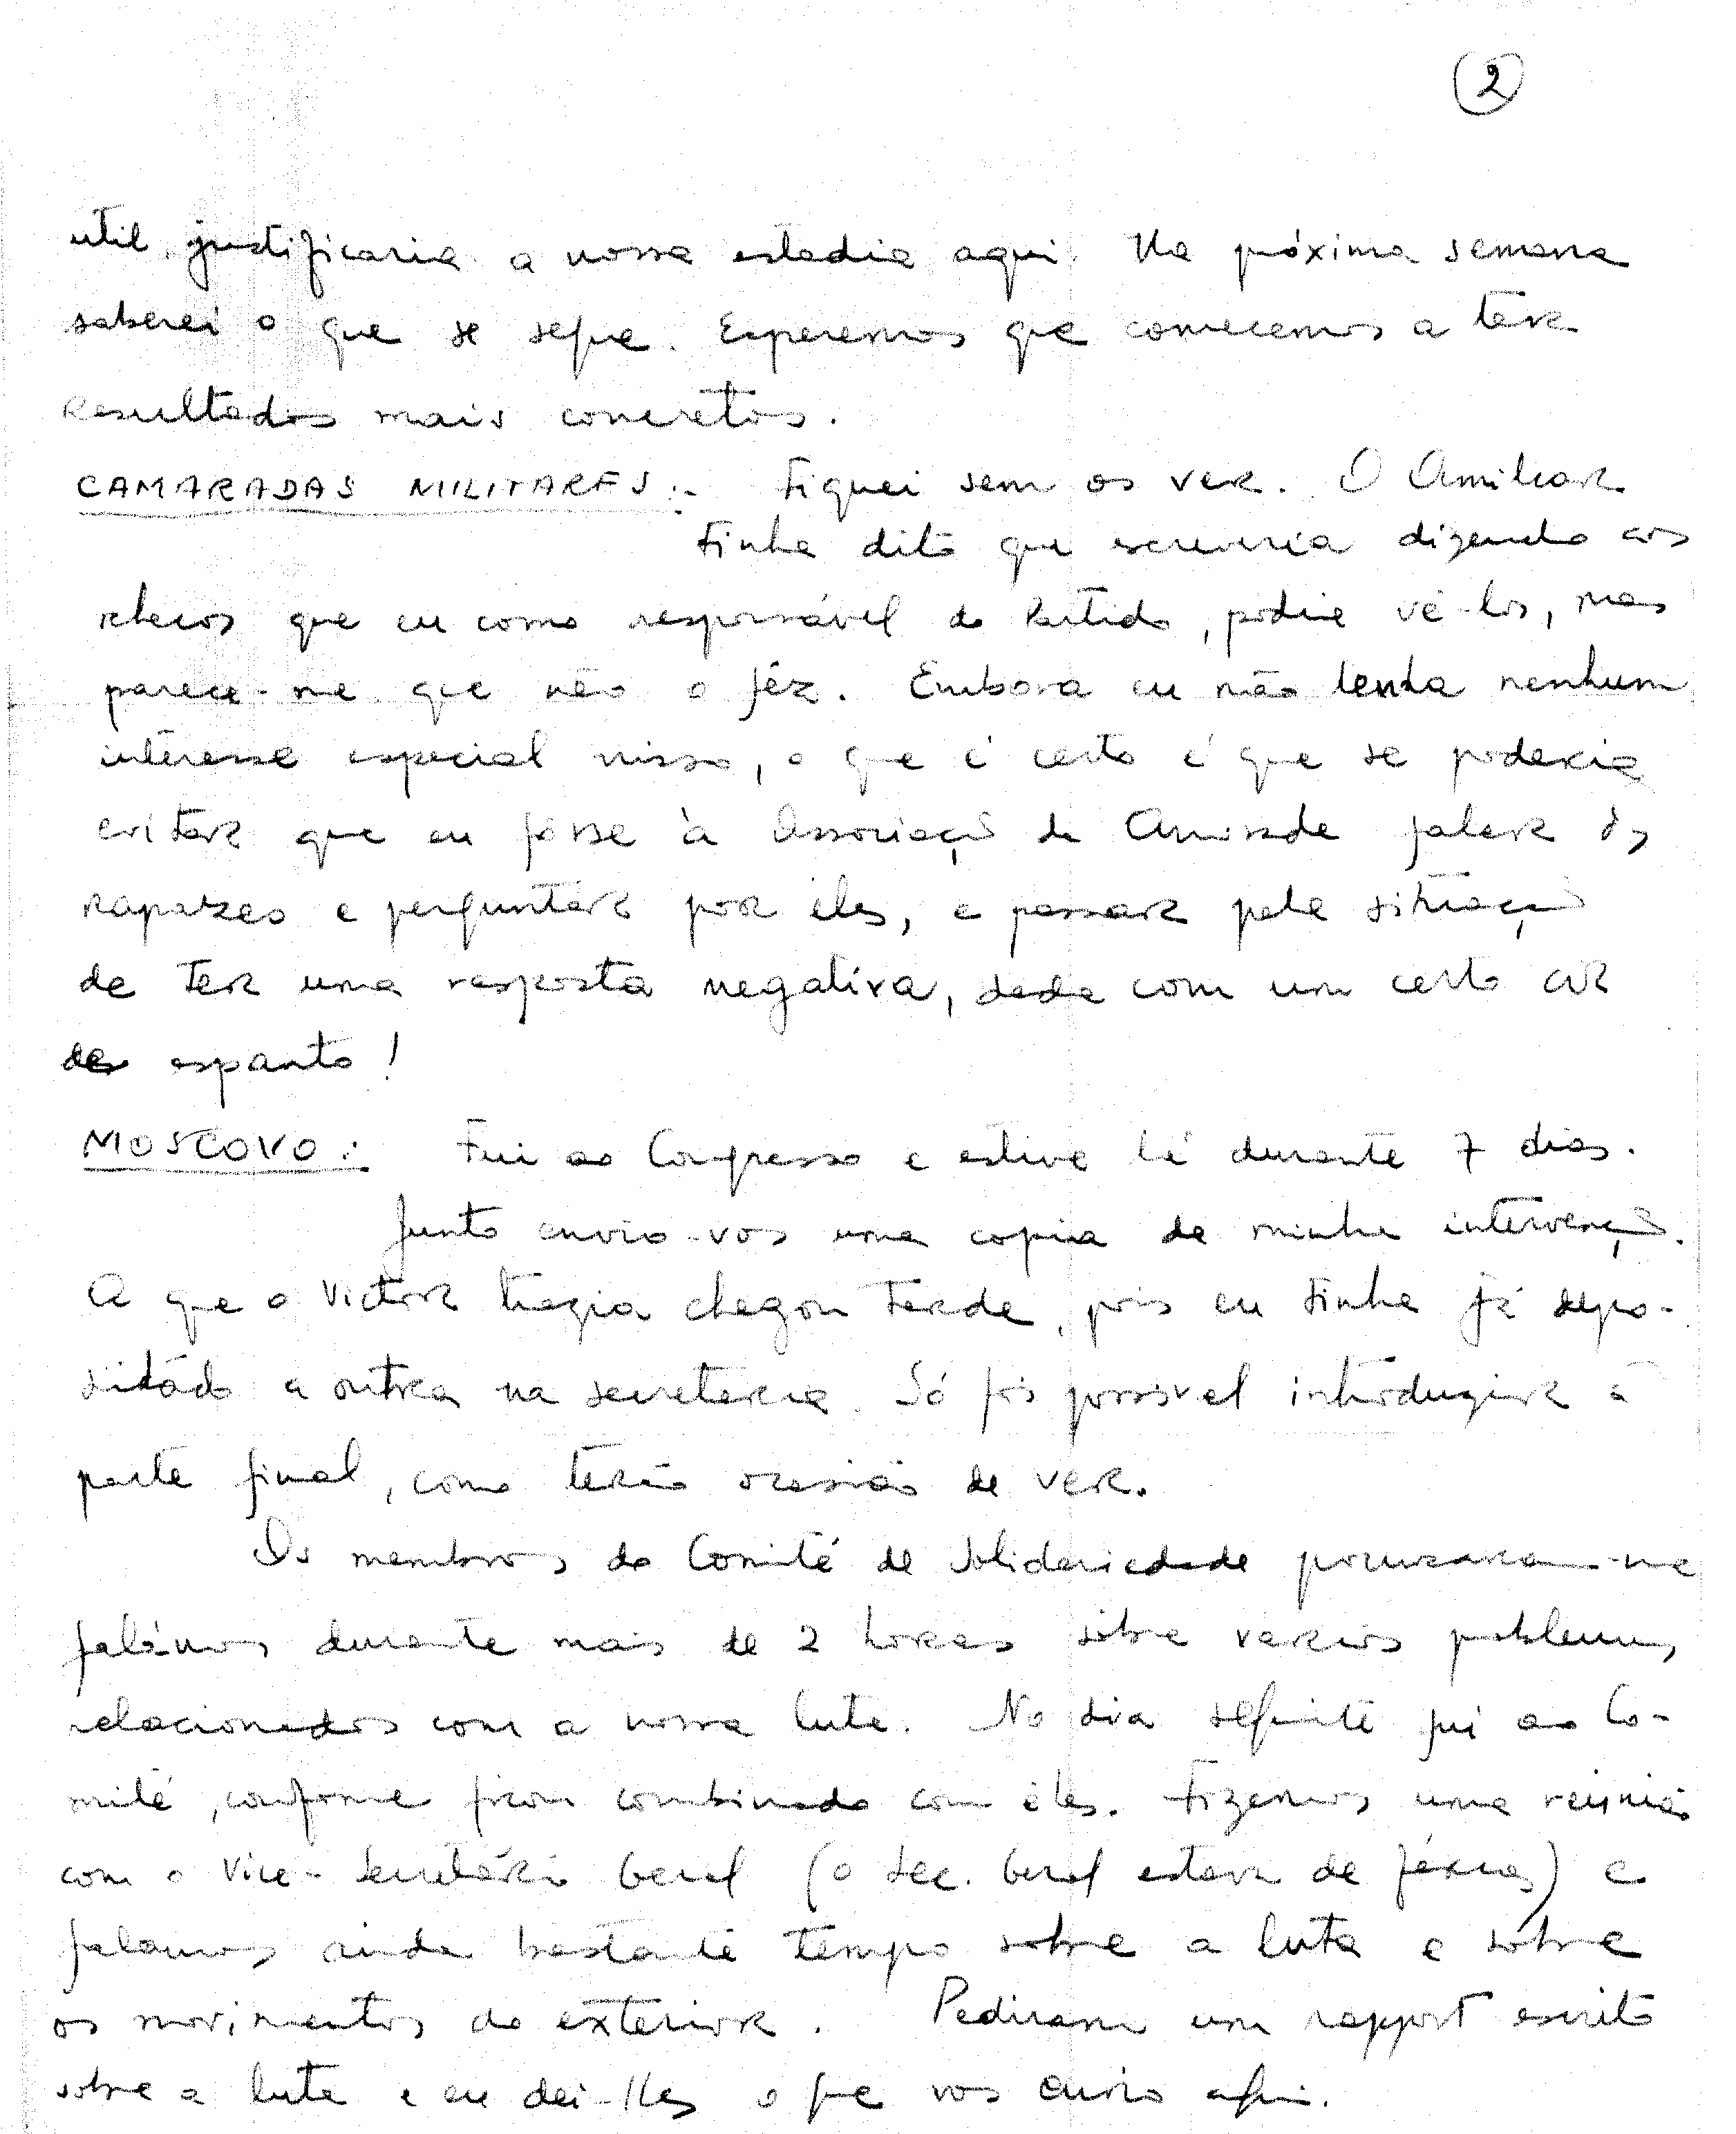 2
util, justificaria a nossa estadia aqui. Na próxima semana
saberei o que se segue. Esperemos que comecemos a ter
resultados mais concretos.
CAMARADAS MILITARES:- Fiquei sem os ver. O Amilcar
tinha dito que escreveria dizendo aos
checos que eu como responsável do Partido, podia vê-los, mas
parece-me que não o fêz. Embora eu não tenha nenhum
interesse especial nisso, o que é certo é que se poderia
evitar que eu fôsse à Associação de Amizade falar dos
rapazes e perguntar por êles, e passar pela situação
de ter uma resposta negativa, dada com um certo ar
de espanto!
MOSCOVO: Fui ao Congresso e estive lá durante 7 dias.
Junto envio-vos uma copia da minha intervenção.
A que o Victor trazia chegou tarde, pois eu tinha já depo-
sitado a outra na secretaria. Só foi possível introduzir a
parte final, como terão ocasião de ver.
Os membros do Comité de Solidariedade procuraram-me
falámos durante mais de 2 horas sôbre varios problemas
relacionados com a nossa luta. No dia seguinte fui ao Co-
mité, conforme ficou combinado com êles. Fizemos uma reunião
com o Vice-Secretário Geral (o Sec. Geral estava de férias) e
falamos ainda bastante tempo sobre a luta e sôbre
os movimentos do exterior. Pediram um rapport escrito
sobre a luta e eu dei-lhes o que vos envio aqui.